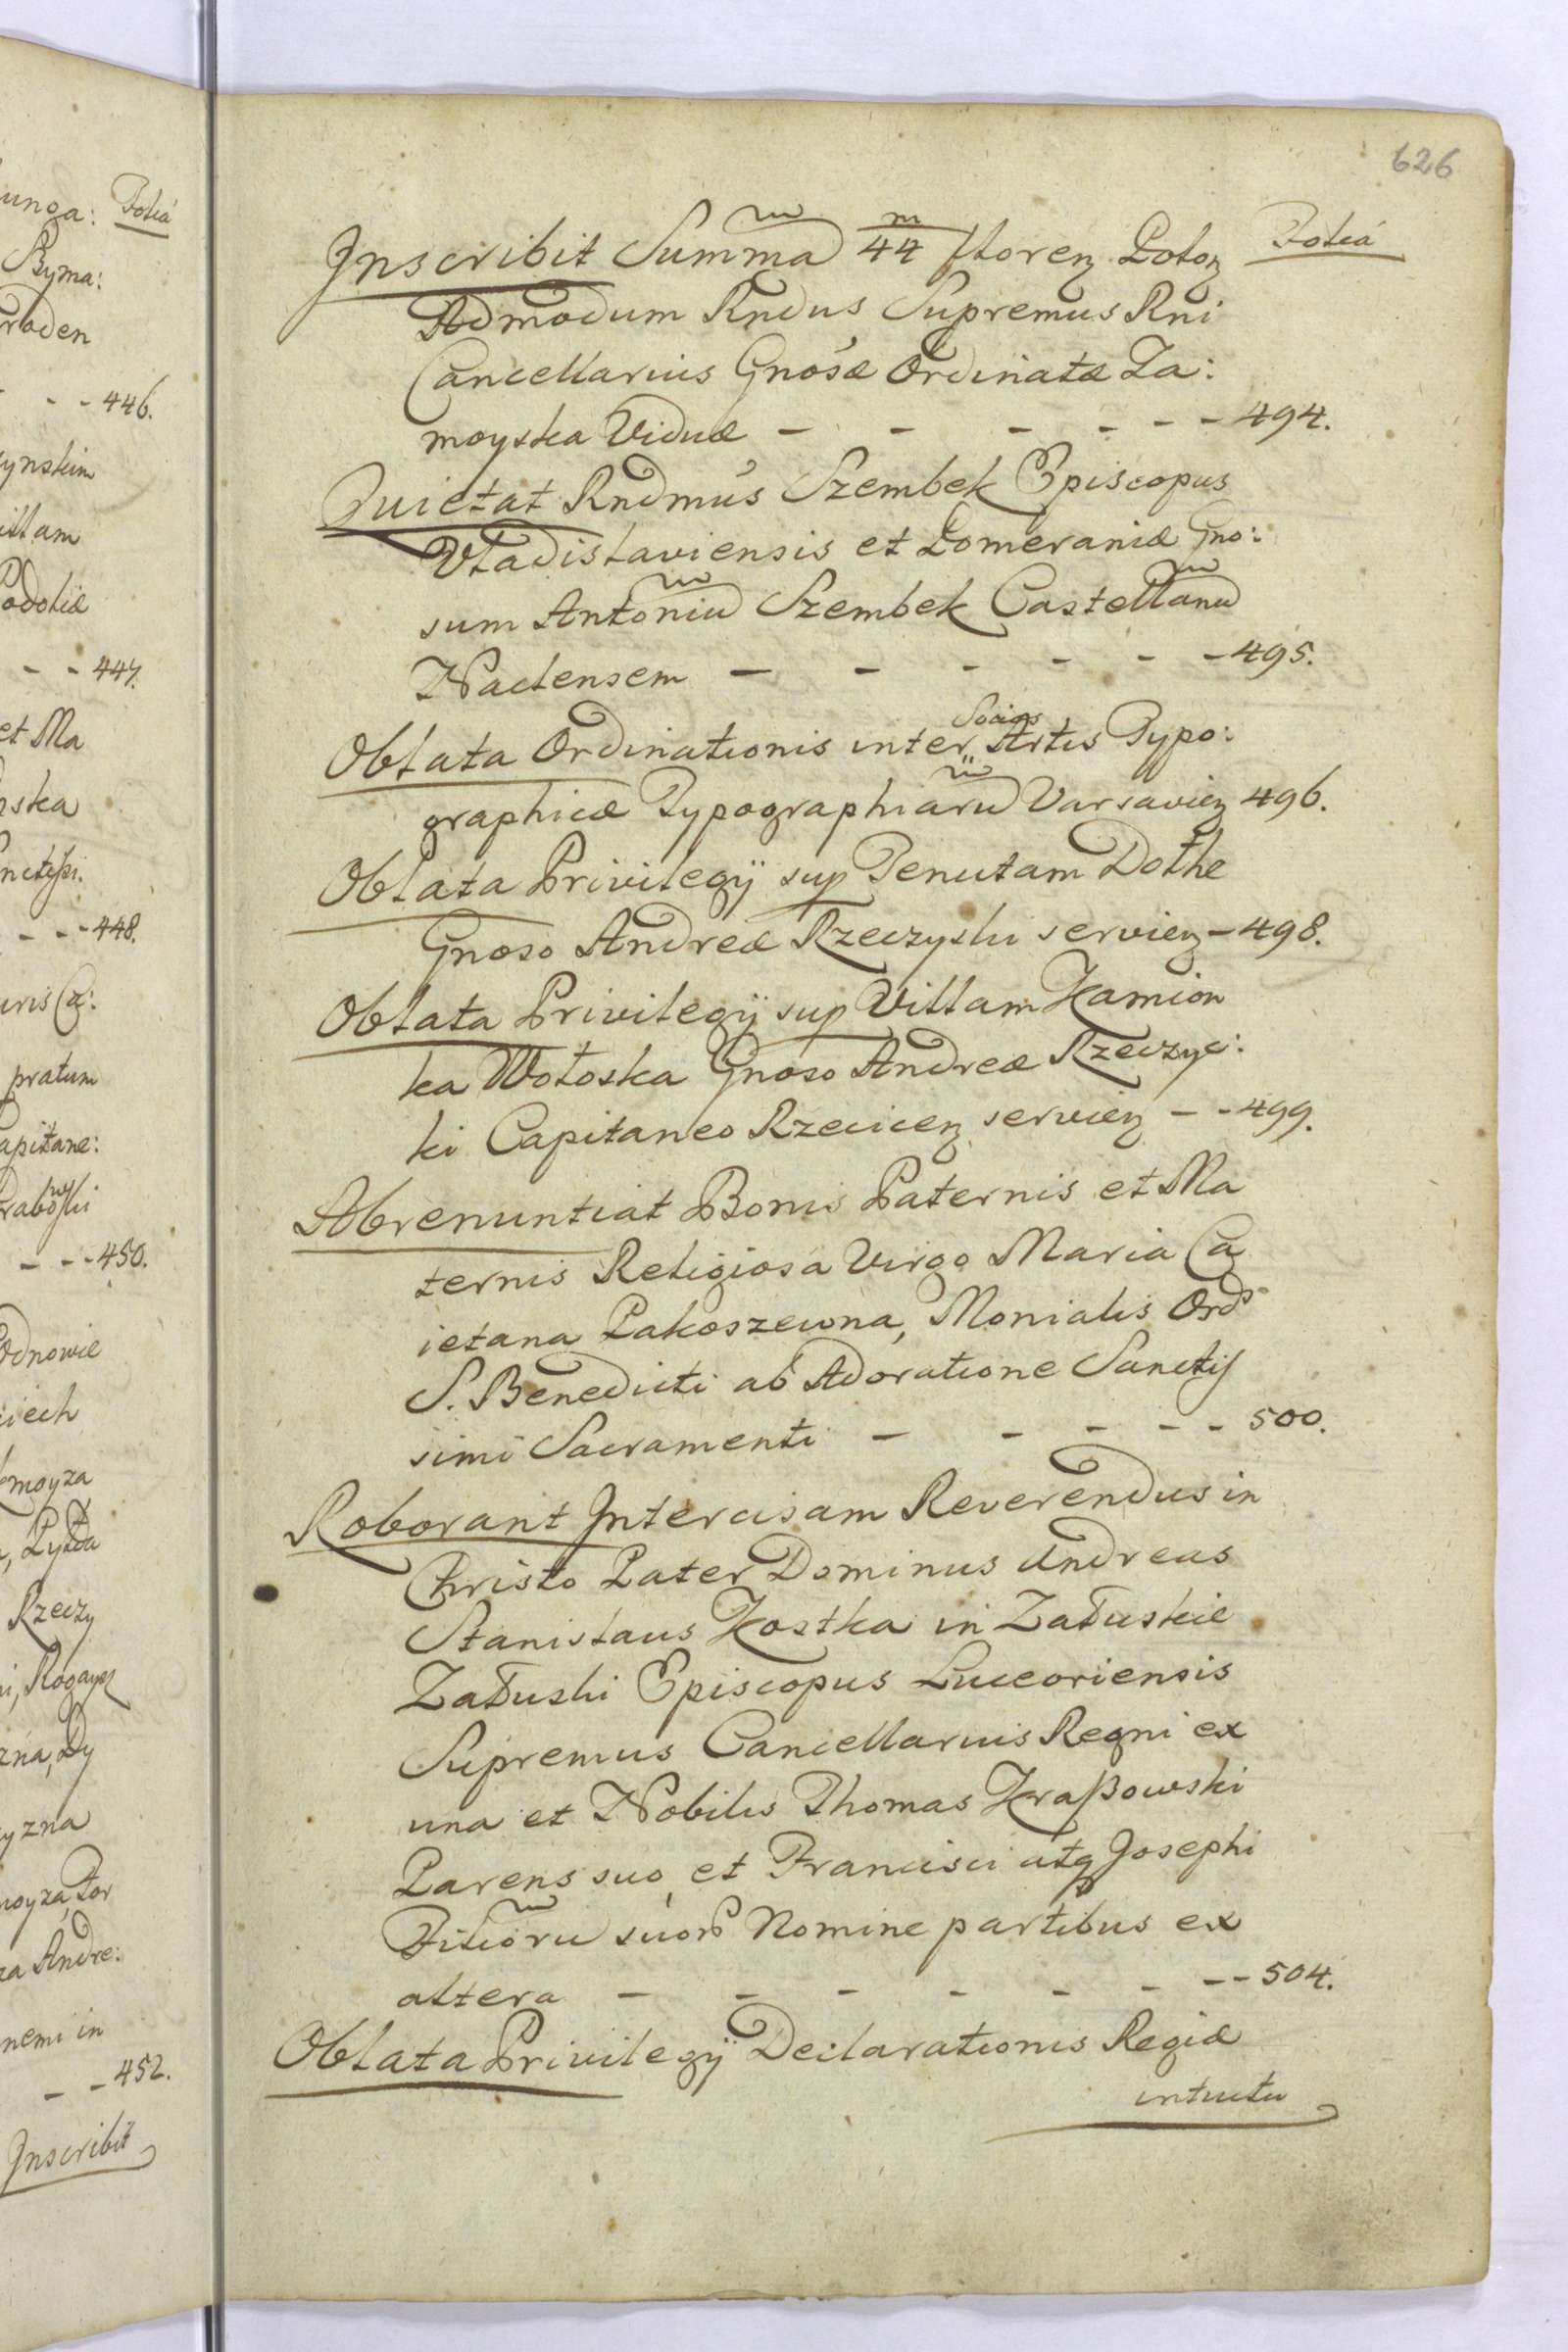 unga: Folia
Ryma:
roden
- - 446.
ynskim
illam
Podoliæ
- - 447.
et Ma
nska
- - - 448.
uris Ca:
pratum
apitane:
rabowski
- - - 450.
Odnowie
iech
moyza
Rzeczy
yzna
za Andre:
nemi in
- - 452.
Inscribit
626
Folia
Inscribit Summã 44 floren Polon
Admodum Rndus Supremus Rni
Cancellarius Gnosæ Ordinatæ Za:
moyska Viduæ - - - - - - 494.
Quietat Rndmus Szembek Episcopus
Vladislaviensis et Pomeraniæ Gno:
sum Antoniũ Szembek Castellanũ
Naclensem - - - - - - 495.
Oblata Ordinationis inter Socios Artis Typo:
graphicæ Typographiarũ Varsavien 496.
Oblata Privilegÿ sup Tenutam Dothe
Gnoso Andreæ Rzeczyski servien - 498.
Oblata Privilegÿ sup Villam Kamion
ka Wołoska Gnoso Andreæ Rzeczyc:
ki Capitaneo Rzecicen servien - - 499.
Abrenuntiat Bonis Paternis et Ma
ternis Religiosa Virgo Maria Ca
ietana Pakoszewna, Monialis Ord
S. Benedicti ab Adoratione Sanctis
simi Sacramenti - - - - - 500.
Roborant Intercisam Reverendus in
Christo Pater Dominus Andreas
Stanislaus Kostka in Załuskie
Załuski Episcopus Luceoriensis
Supremus Cancellarius Regni ex
una et Nobilis Thomas Kraßowski
Parens suo, et Francisci atq Josephi
Filiorũ suor Nomine partibus ex
altera - - - - - - - - 504.
Oblata Privilegÿ Declarationis Regiæ
intuitu